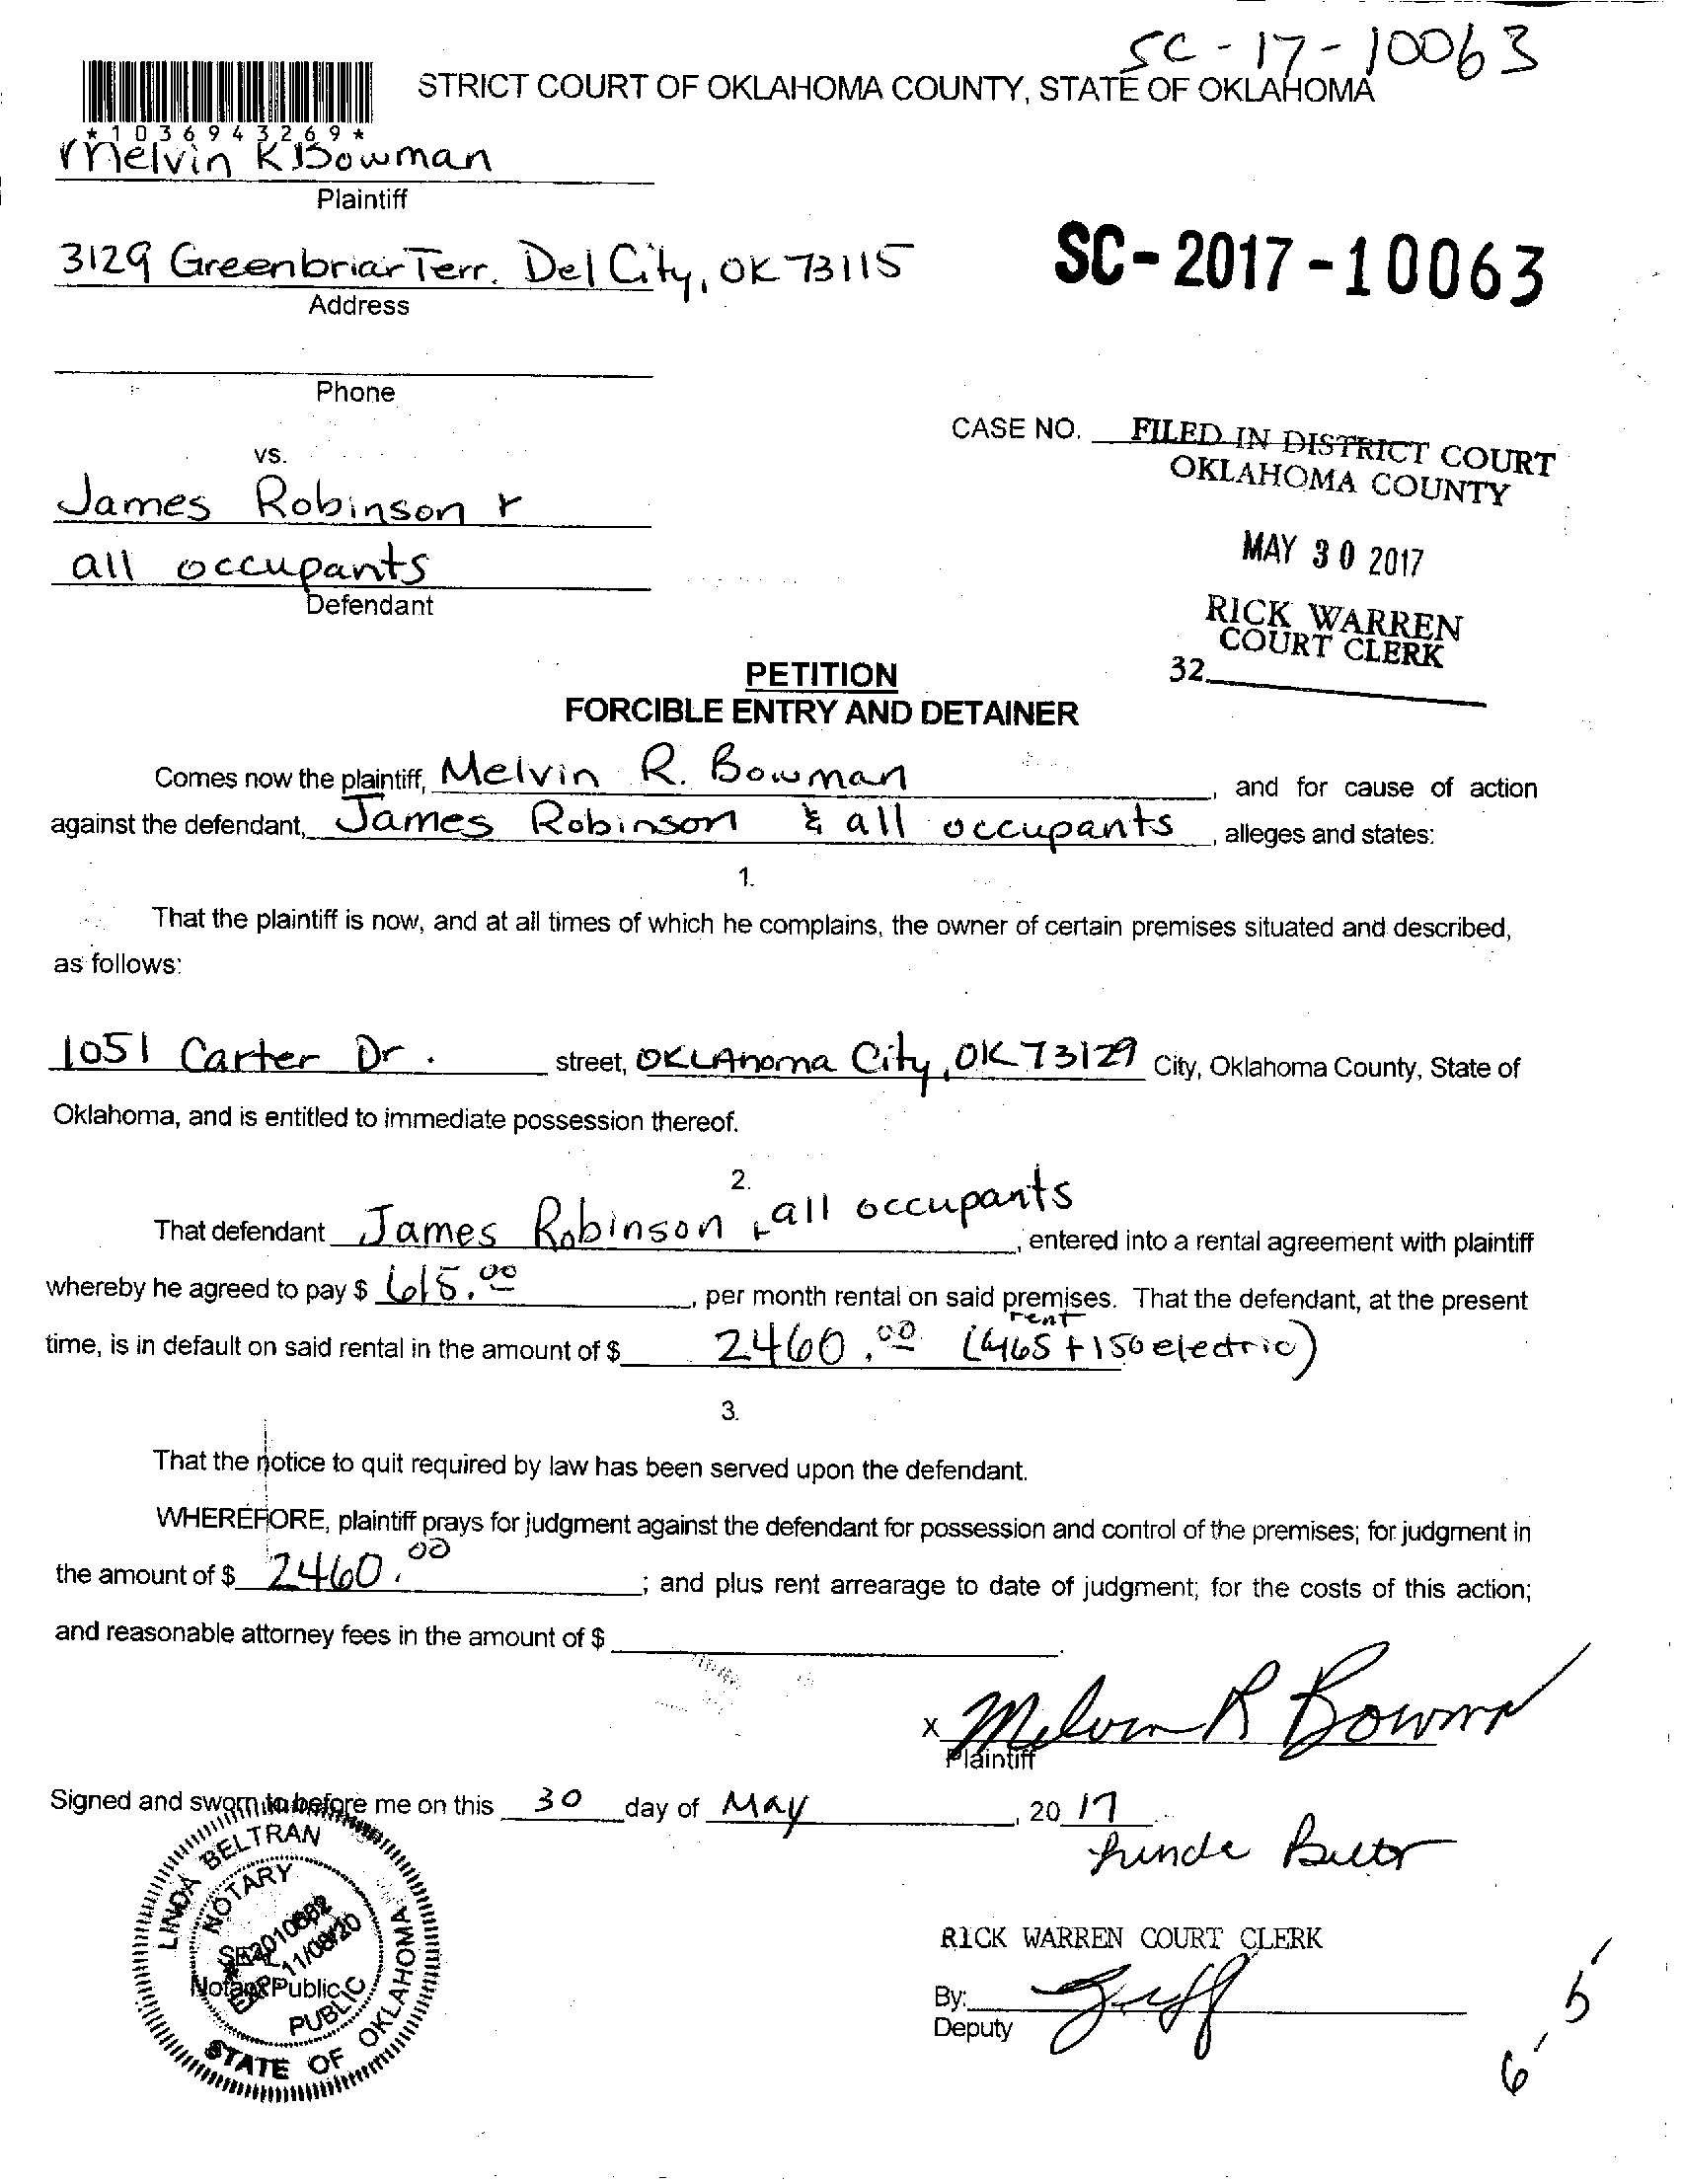 SC-17-10063
STRICT COURT OF OKLAHOMA COUNTY, STATE OF OKLAHOMA
*1036943269*
Melvin K Bowman
Plaintiff
3129 Greenbriar Terr. Del City, OK 73115
SC-2017-10063
Address
Phone
CASE NO. FILED IN DISTRICT COURT
OKLAHOMA COUNTY
vs.
James Robinson &
MAY 30 2017
all occupants
Defendant
RICK WARREN
COURT CLERK
32
PETITION
FORCIBLE ENTRY AND DETAINER
Comes now the plaintiff, Melvin R. Bowman, and for cause of action
against the defendant, James Robinson & all occupants, alleges and states:
1.
That the plaintiff is now, and at all times of which he complains, the owner of certain premises situated and described,
as follows:
1051 Carter Dr. street, OKLAhoma City, OK 73129 City, Oklahoma County, State of
Oklahoma, and is entitled to immediate possession thereof.
2.
That defendant James Robinson & all occupants, entered into a rental agreement with plaintiff
whereby he agreed to pay $ 615.00, per month rental on said premises. That the defendant, at the present
time, is in default on said rental in the amount of $ 2460.00 (465 rent + 150 electric)
3.
That the notice to quit required by law has been served upon the defendant.
WHEREFORE, plaintiff prays for judgment against the defendant for possession and control of the premises; for judgment in
the amount of $ 2460.00; and plus rent arrearage to date of judgment; for the costs of this action;
and reasonable attorney fees in the amount of $
x Melvin R Bowman
Plaintiff
Signed and sworn to before me on this 30 day of May, 20 17
LINDA BELTRAN
NOTARY
EXP. 11/08/20
Notary Public
PUBLIC
STATE OF OKLAHOMA
RICK WARREN COURT CLERK
By:
Deputy